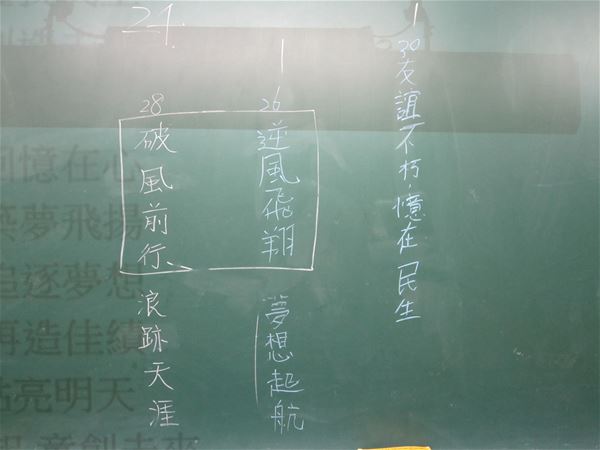 30友誼不朽,憶在民生
26逆風飛翔 夢想起航
24.
28破風前行、浪跡天涯
回憶在心
築夢飛揚
追逐夢想
再造佳績
點亮明天
意創未來